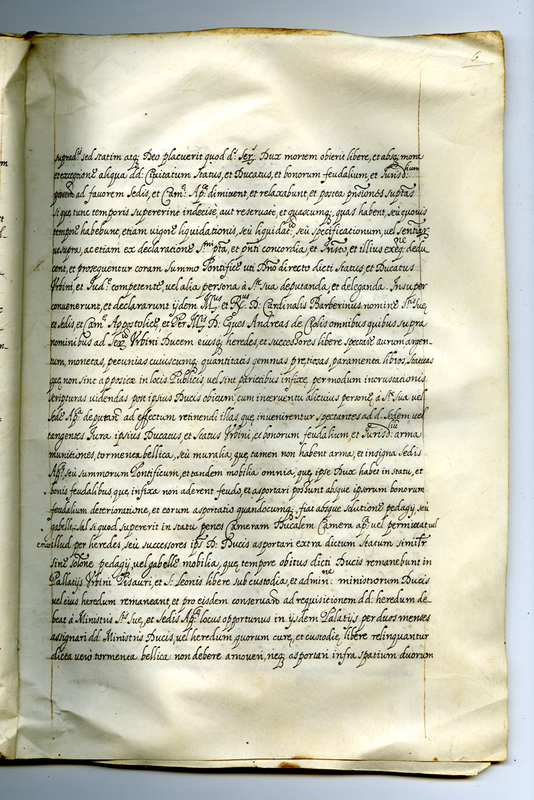 5
supradᵃ sed statim atq; Deo placuerit quod dˢ. Serᵘˢ Dux mortem obierit libere, et absq; mora
et exceptione aliqua dd: Civitatum Status, et Ducatus, et bonorum feudalium, et Jurisdᵘᵐ
ad favorem Sedis, et Camᵉ Apᶜᵉ dimivent, et relaxabunt, et postea pnsiones suptas
si que tunc temporis supererint indecise, aut reservate, et quascunq; quas habent, seu quovis
tempore habebunt, etiam vigore liquidationis, seu liquidat seu specificationum, vel sentiar
ut supra, ac etiam ex declaratione Sᵐⁱ et pnti concordia, et Instro, et illius exeqⁿᵉ dedu
cent, et prosequentur coram Summo Pontifice uti Dno directo dicti Status, et Ducatus
Urbini, et Jud. competente, vel alia persona à Sᵗᵉ sua deputanda, et deleganda. Insuper
convenerunt, et declararunt ijdem Illᵘˢ et Rᵘˢ D: Cardinalis Barberinus nomine Sᵗⁱˢ sue,
et Sedis et Camᵉ Apostolice, et Per Illᵘˢ D: Eques Andreas de omnibus quibus supra
nominibus ad Serᵘᵐ Urbini Ducem eiusq; heredes, et successores libere spectare aurum argen-
tum, monetas, pecunias cuiuscunq; quantitatis gemmas pretiosas, paramenta libros, statuas
que non sint apposite in locis Publicis vel sint parietibus infixe, per modum incrustationis
scripturas videndas post ipsius Ducis obitum cum interventu alicuius persone à Sᵗᵉ Sua vel
Sede Apᶜᵃ deputate ad effectum retinendi illas que invenirentur spectantes ad d: Sedem vel
tangentes Iura ipsius Ducatus, et Status Urbini, et bonorum feudalium et Jurisdᵘᵐ arma
munitiones, tormenta bellica, seu muralia, que tamen non habent arma, et insignia Sedis
Apᶜᵉ, seu summorum Pontificum, et tandem mobilia omnia, que ipse Dux habet in statu, et
bonis feudalibus que infixa non aderent feudo, et asportari possunt absque ipsorum bonorum
feudalium deterioratione, et eorum asportatio quandocunq; fiat absque solutione pedagij, seu
gabelle, Sal si quod supererit in statu penes Cameram Fiscalem Camera apᶜᵃ vel permittat vel
illud per heredes, seu successores ipsˢ D: Ducis asportari extra dictum Statum similr
sine solone pedagij vel gabelle mobilia, que tempore obitus dicti Ducis remanebunt in
Pallatijs Urbini Pisauri, et S: Leonis libere sub custodia, et adminⁿᵉ: ministrorum Ducis
vel eius heredum remaneant, et pro eisdem conservando ad requisitionem dd: heredum de-
beat à Ministris Sᵗⁱˢ Sue, et Sedis Apᶜᵉ locus opportunus in ijsdem Palatijs per duos menses
assignari dd: Ministris Ducis, vel heredum quorum cure, et custodie, libere relinquantur
dicta vero tormenta bellica non debere amoveri, neq; asportari infra spatium duorum